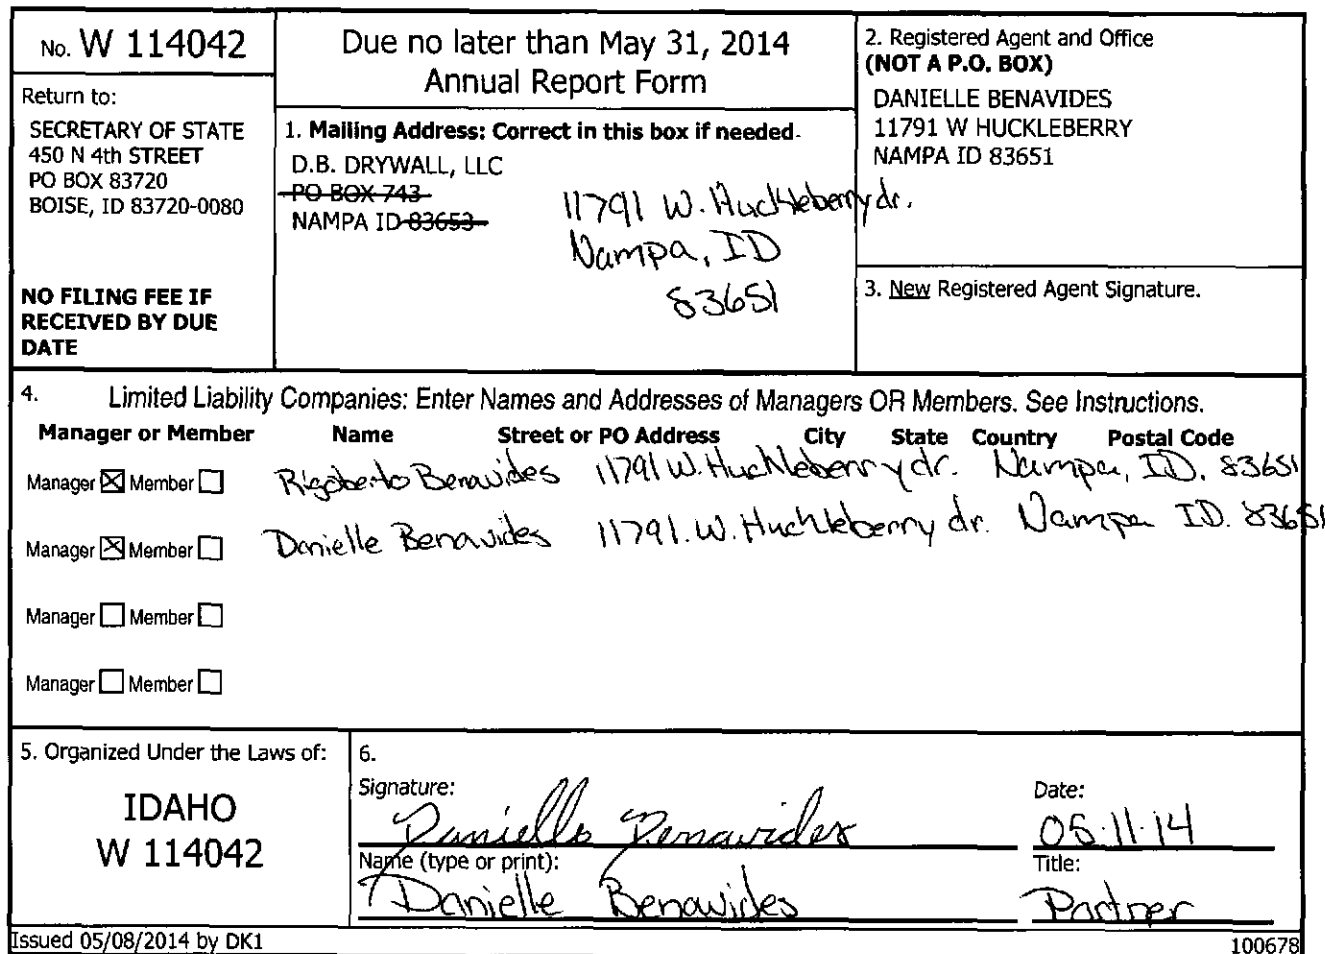 No. W 114042
Return to:
SECRETARY OF STATE
450 N 4th STREET
PO BOX 83720
BOISE, ID 83720-0080
NO FILING FEE IF
RECEIVED BY DUE
DATE
Due no later than May 31, 2014
Annual Report Form
1. Mailing Address: Correct in this box if needed.
D.B. DRYWALL, LLC
PO BOX 743
NAMPA ID 83653
11791 W. Huckleberry dr.
Nampa, ID
83651
2. Registered Agent and Office
(NOT A P.O. BOX)
DANIELLE BENAVIDES
11791 W HUCKLEBERRY
NAMPA ID 83651
3. New Registered Agent Signature.
4. Limited Liability Companies: Enter Names and Addresses of Managers OR Members. See Instructions.
Manager or Member Name Street or PO Address City State Country Postal Code
Manager ☒ Member ☐ Rigoberto Benavides 11791 W. Huckleberry dr. Nampa, ID. 83651
Manager ☒ Member ☐ Danielle Benavides 11791. W. Huckleberry dr. Nampa ID. 83651
Manager ☐ Member ☐
Manager ☐ Member ☐
5. Organized Under the Laws of:
IDAHO
W 114042
6.
Signature: Danielle Benavides
Date: 05.11.14
Name (type or print): Danielle Benavides
Title: Partner
Issued 05/08/2014 by DK1
100678